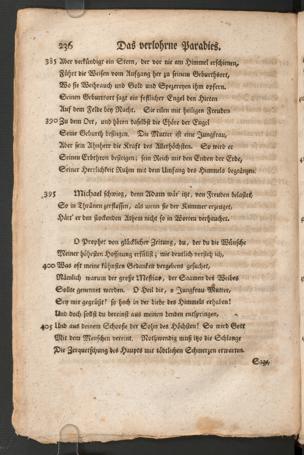 236 Das verlohrne Paradies.
385 Aber verkündigt ein Stern, der vor nie am Himmel erschienen,
Führt die Weisen vom Aufgang her zu seinem Geburthsort,
Wo sie Weihrauch und Gold und Spezereyen ihm opfern.
Seinen Geburtsort sagt ein festlicher Engel den Hirten
Auf dem Felde bey Nacht. Sie eilen mit heiligen Freuden
390 Zu dem Ort, und hören daselbst die Chöre der Engel
Seine Geburth besingen. Die Mutter ist eine Jungfrau,
Aber sein Ahnherr die Kraft des Allerhöchsten. So wird er
Seinen Erbthron besteigen; sein Reich mit den Enden der Erde,
Seiner Herrlichkeit Ruhm mit dem Umfang des Himmels begränzen.
395 Michael schwieg, denn Adam wär' itzt, von Freuden belastet,
So in Thränen zerflossen, als wenn sie der Kummer erzeuget,
Hätt' er den stockenden Athem nicht so in Worten verhauchet.
O Prophet von glücklicher Zeitung, du, der du die Wünsche
Meiner höhesten Hoffnung erfüllst; wie deutlich versteh ich,
400 Was oft meine kühnsten Gedanken vergebens gesuchet,
Nämlich warum der große Messias, der Saamen des Weibes
Sollte genennet werden. O Heil dir, o Jungfrau Mutter,
Sey mir gegrüßt! so hoch in der Liebe des Himmels erhaben!
Und doch sollst du dereinst aus meinen Lenden entspringen,
405 Und aus deinem Schooße der Sohn des Höchsten! So wird Gott
Mit dem Menschen vereint. Nothwendig muß itzo die Schlange
Die Zerquetschung des Haupts mit tödtlichen Schmerzen erwarten.
Sage,